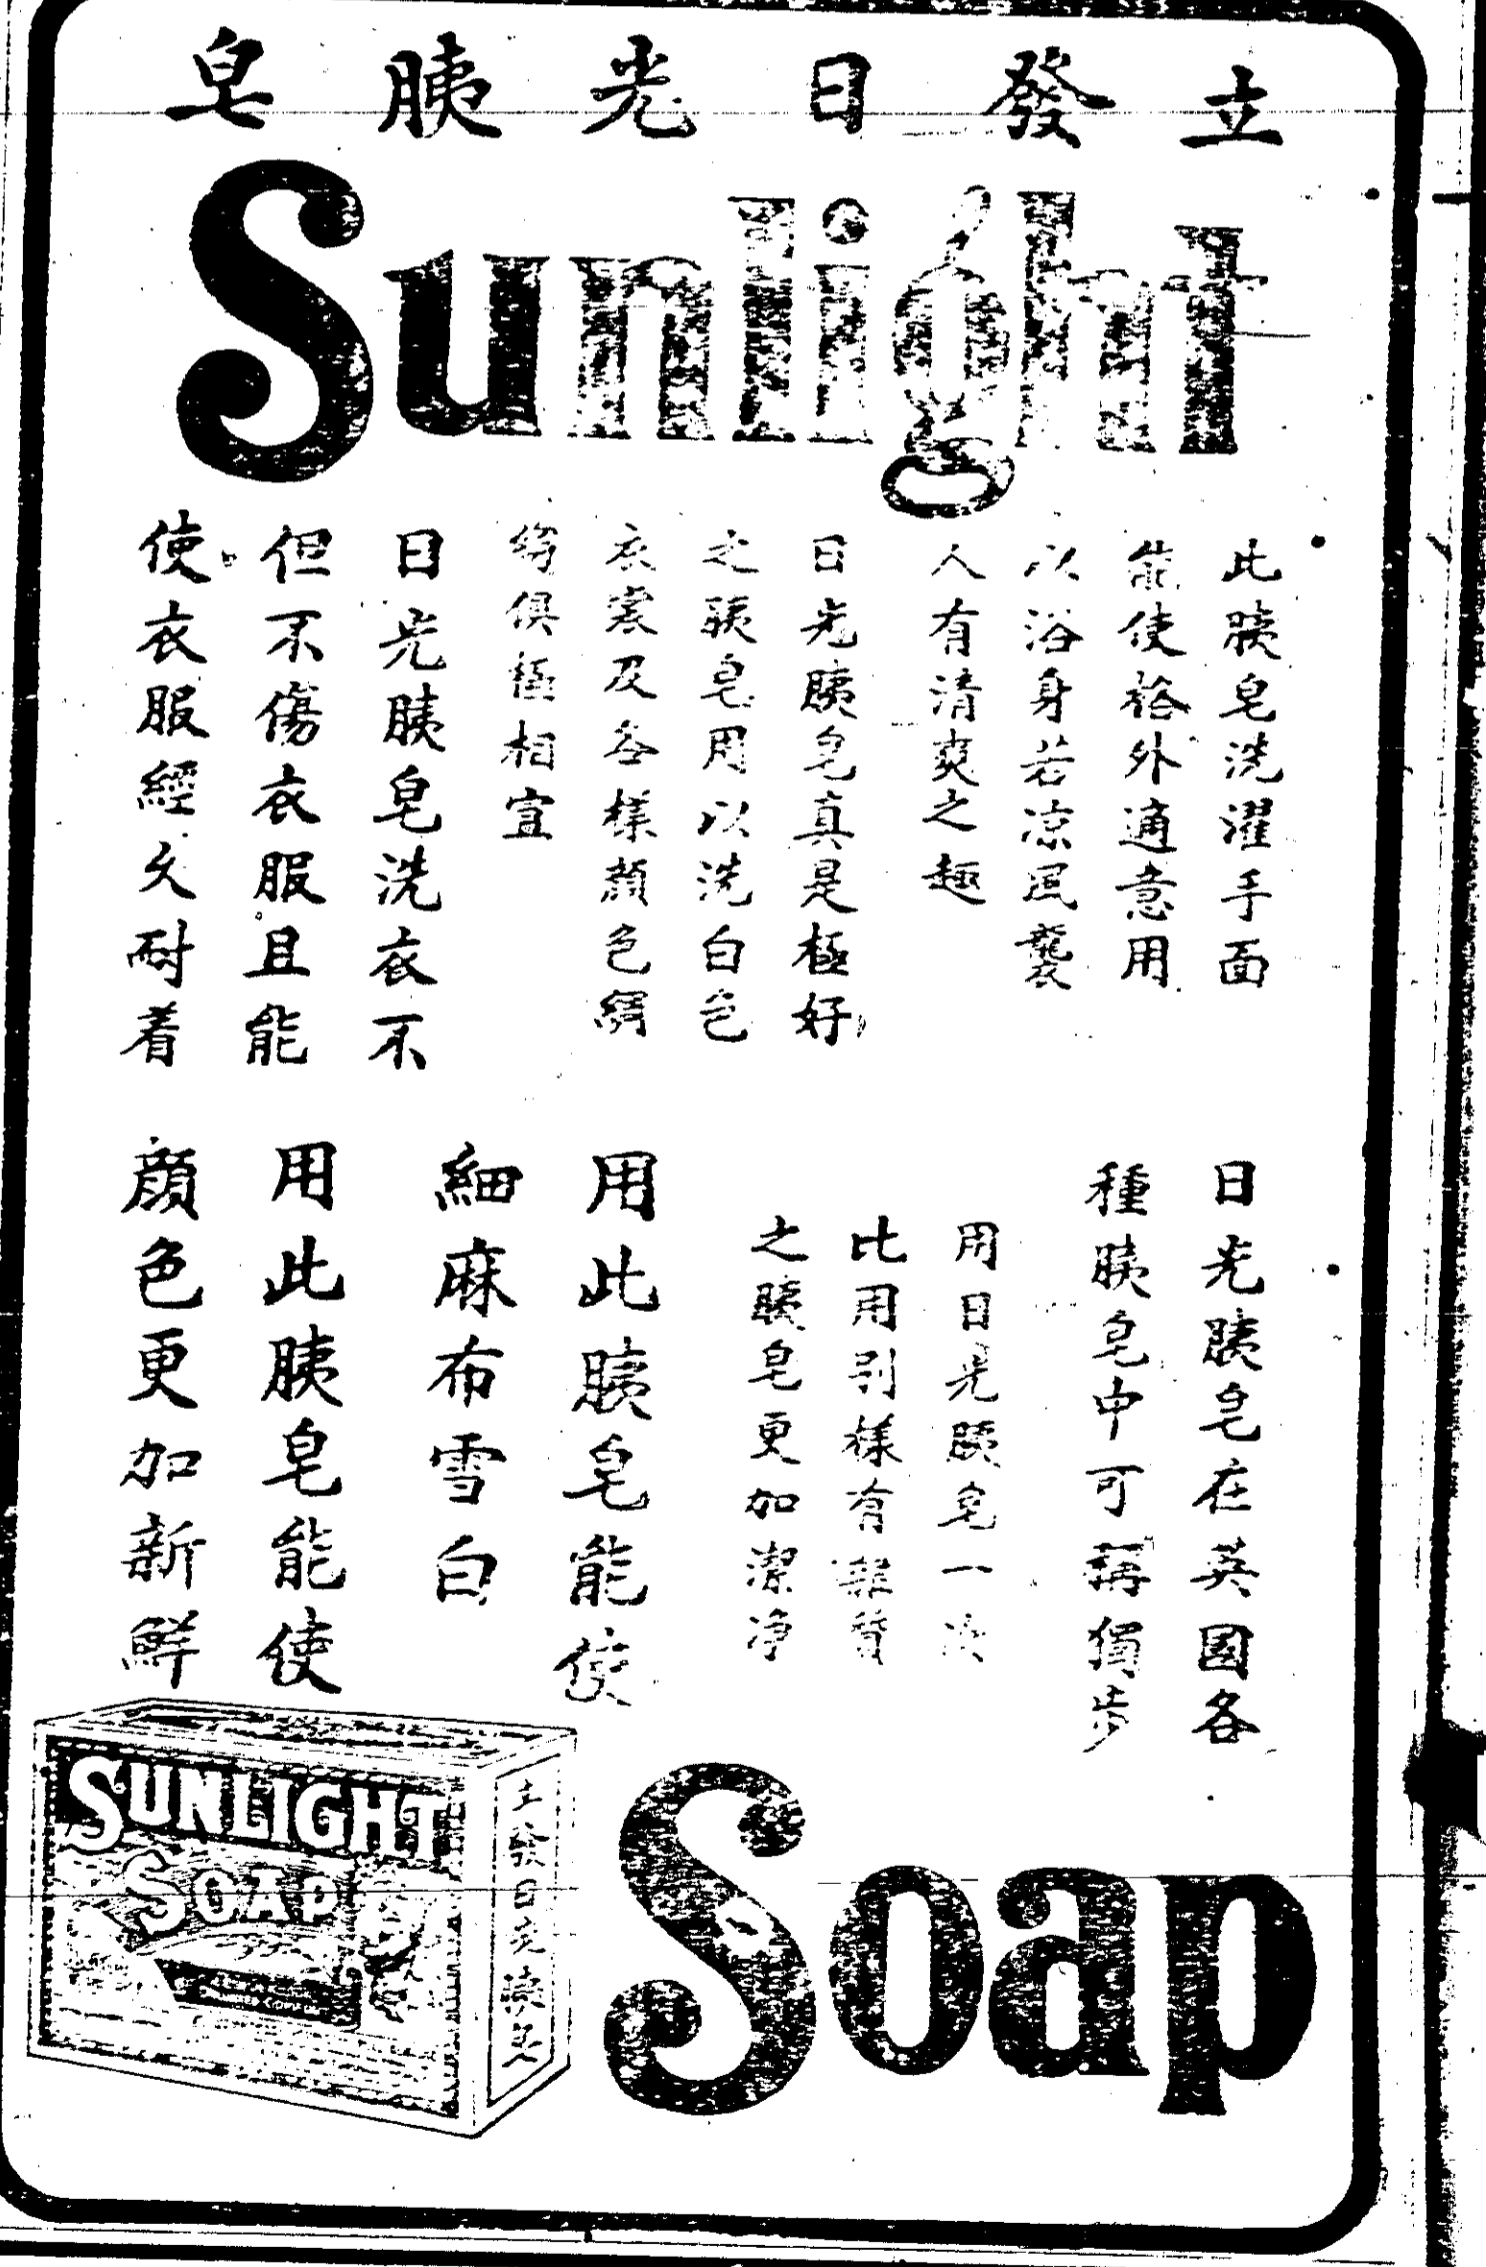 立發日光胰皂
Sunlight
此胰皂洗濯手面
能使格外適意用
以浴身若凉風襲
人有清爽之趣
日光胰皂真是極好
之胰皂用以洗白色
衣裳及各樣顔色綢
縐俱極相宜
日光胰皂洗衣不
但不傷衣服且能
使衣服經久耐着
日光胰皂在英國各
種胰皂中可稱獨步
用日光胰皂一次
比用别樣有
之胰皂更加潔净
用此胰皂能使
細麻布雪白
用此胰皂能使
顔色更加新鮮
SUNLIGHT
SOAP
立發日光胰皂
Soap